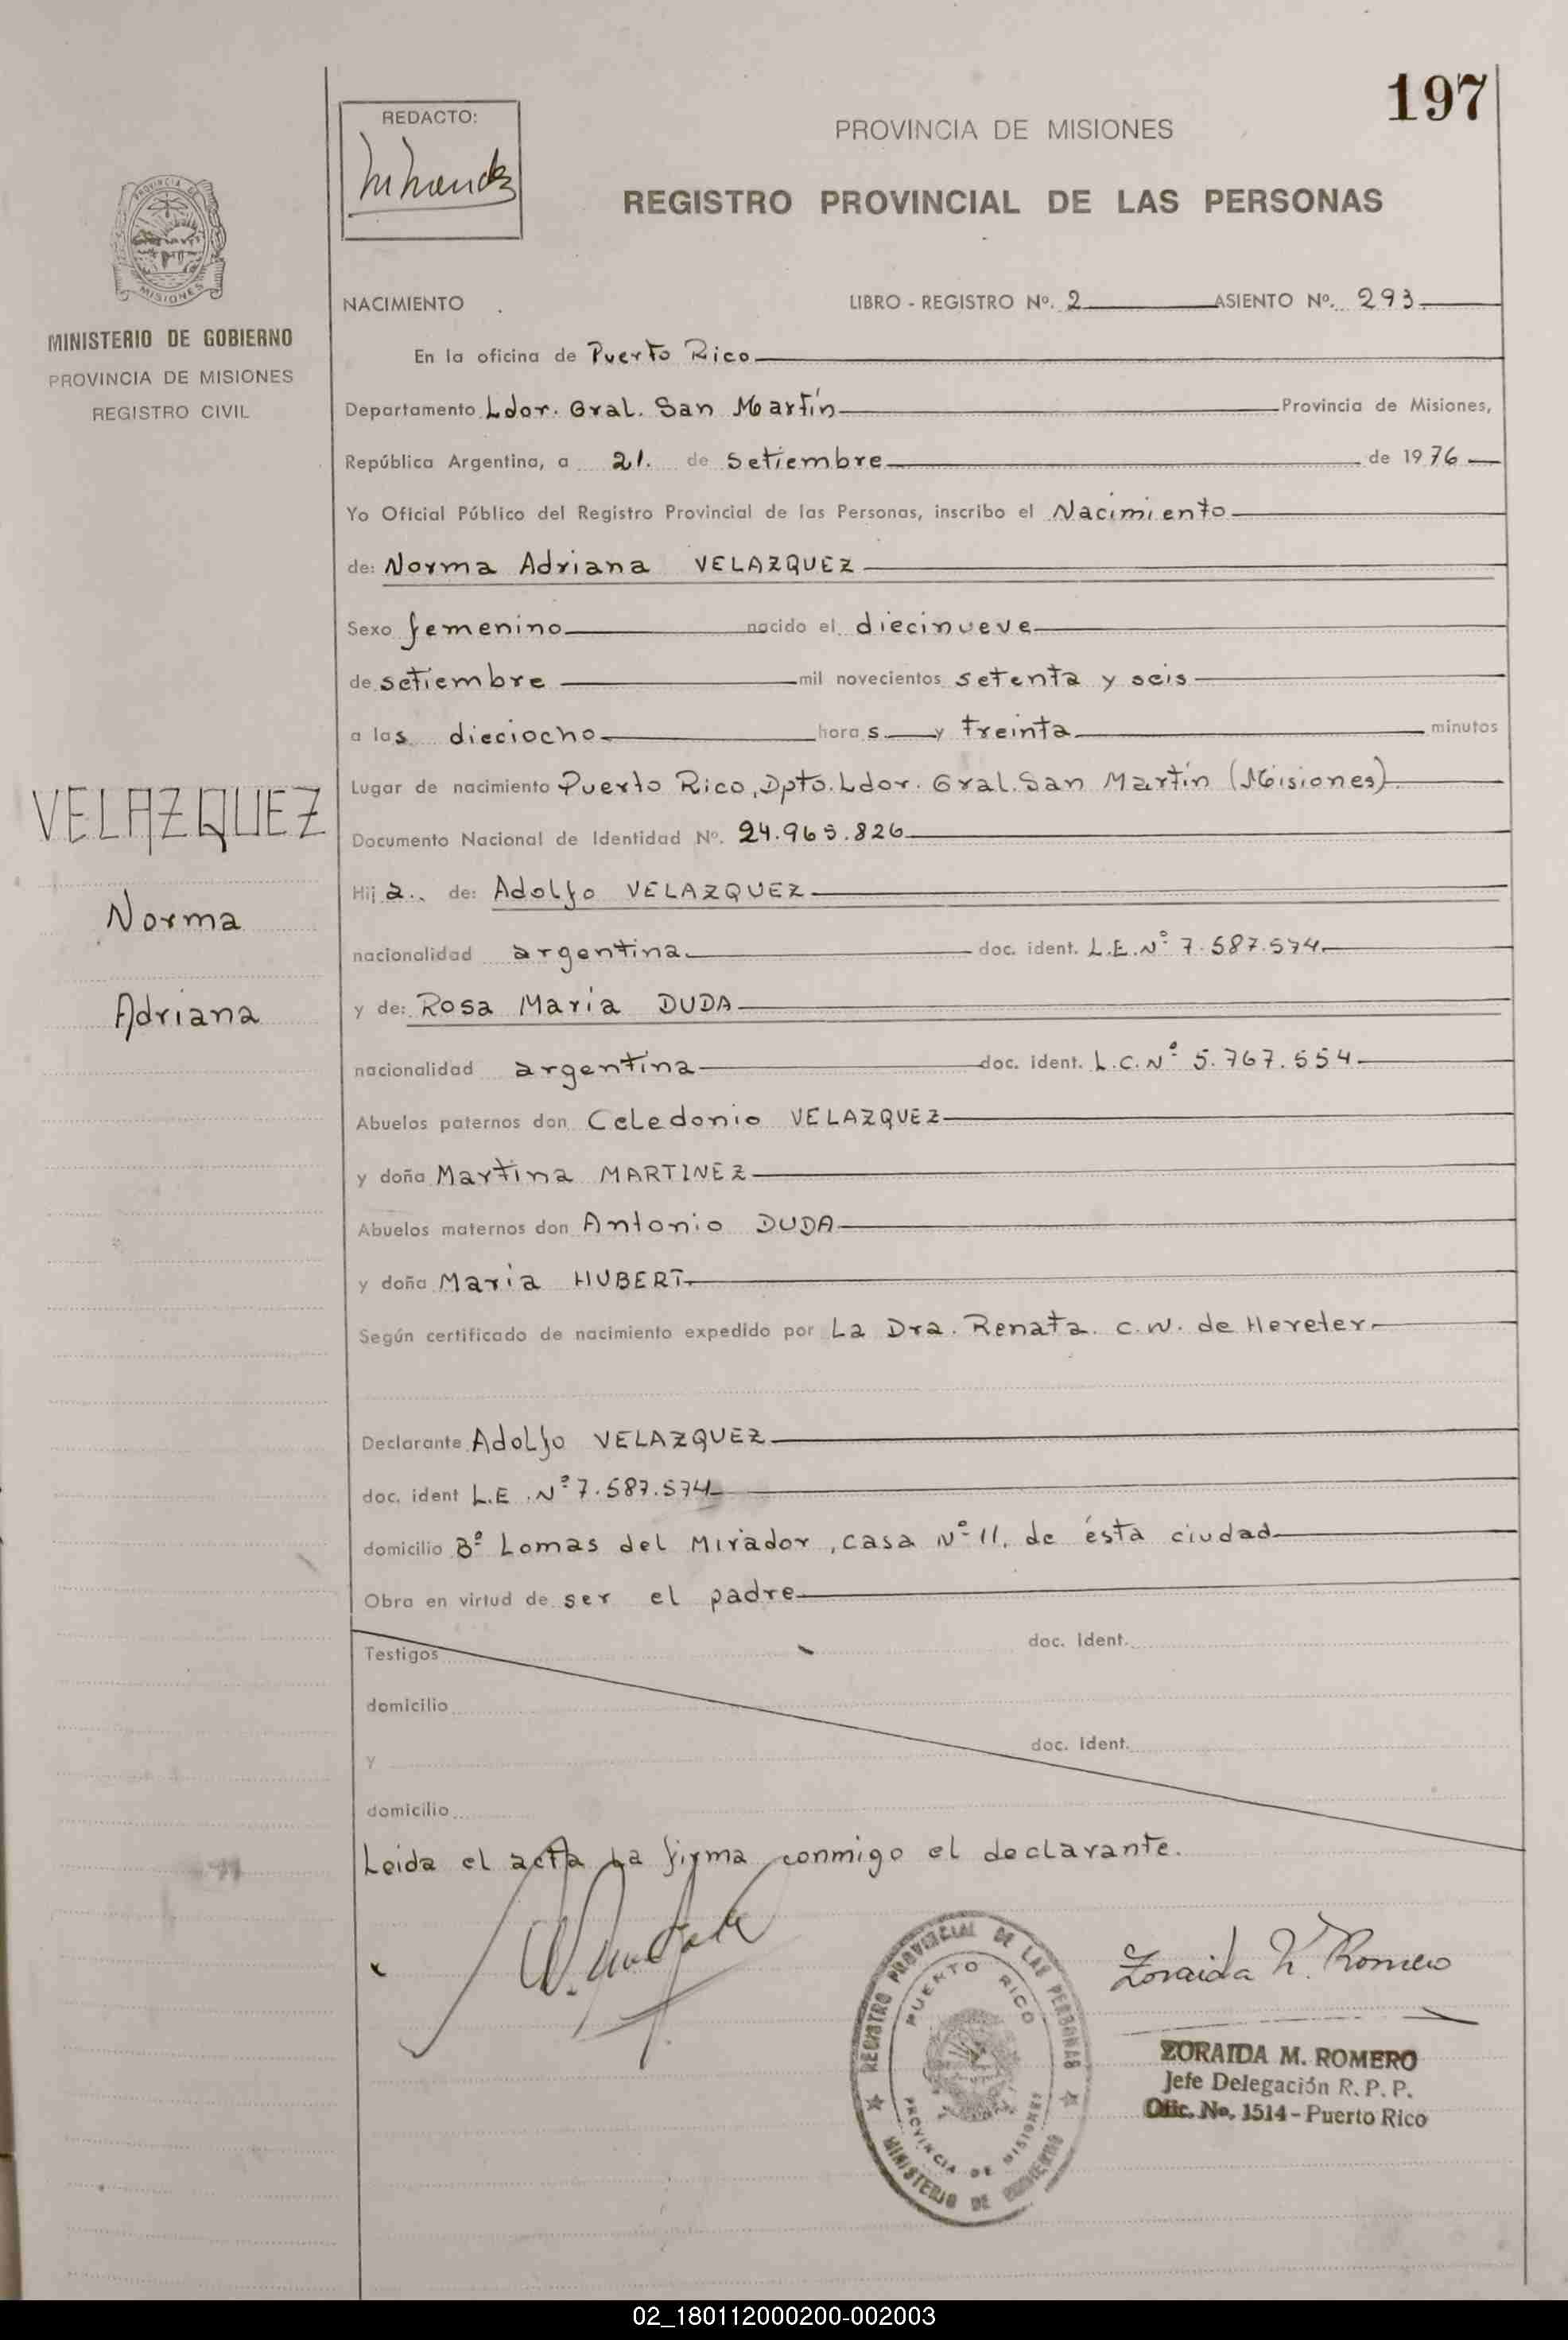 197
REDACTO:
PROVINCIA DE MISIONES
REGISTRO PROVINCIAL DE LAS PERSONAS
PROVINCIA DE
MISIONES
MINISTERIO DE GOBIERNO
PROVINCIA DE MISIONES
REGISTRO CIVIL
NACIMIENTO LIBRO - REGISTRO Nº. 2 ASIENTO Nº. 293
En la oficina de Puerto Rico
Departamento Ldor. Gral. San Martín Provincia de Misiones,
República Argentina, a 21. de setiembre de 1976
Yo Oficial Público del Registro Provincial de las Personas, inscribo el Nacimiento
de: Norma Adriana VELAZQUEZ
Sexo femenino nacido el diecinueve
de setiembre mil novecientos setenta y seis
a las dieciocho horas y treinta minutos
Lugar de nacimiento Puerto Rico, Dpto. Ldor. Gral. San Martín (Misiones)
VELAZQUEZ
Norma
Adriana
Documento Nacional de Identidad Nº. 24.965.826
Hija.. de: Adolfo VELAZQUEZ
nacionalidad argentina doc. ident. L.E.Nº 7.587.574
y de: Rosa María DUDA
nacionalidad argentina doc. ident. L.C.Nº 5.767.554
Abuelos paternos don Celedonio VELAZQUEZ
y doña Martina MARTINEZ
Abuelos maternos don Antonio DUDA
y doña María HUBERT
Según certificado de nacimiento expedido por La Dra. Renata C.W. de Hereter
Declarante Adolfo VELAZQUEZ
doc. ident L.E. Nº 7.587.574
domicilio Bº Lomas del Mirador, casa Nº 11. de ésta ciudad
Obra en virtud de ser el padre
Testigos doc. Ident.
domicilio
y doc. Ident.
domicilio
Leida el acta la firma conmigo el declarante.
REGISTRO PROVINCIAL DE LAS PERSONAS
PUERTO RICO
PROVINCIA DE MISIONES
MINISTERIO DE GOBIERNO
Zoraida M. Romero
ZORAIDA M. ROMERO
Jefe Delegación R. P. P.
Ofic. No. 1514 - Puerto Rico
02_180112000200-002003